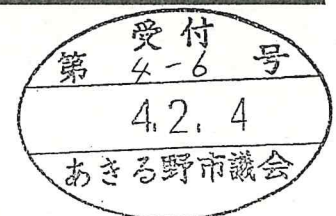 受付
第 4-6 号
4.2.4
あきる野市議会